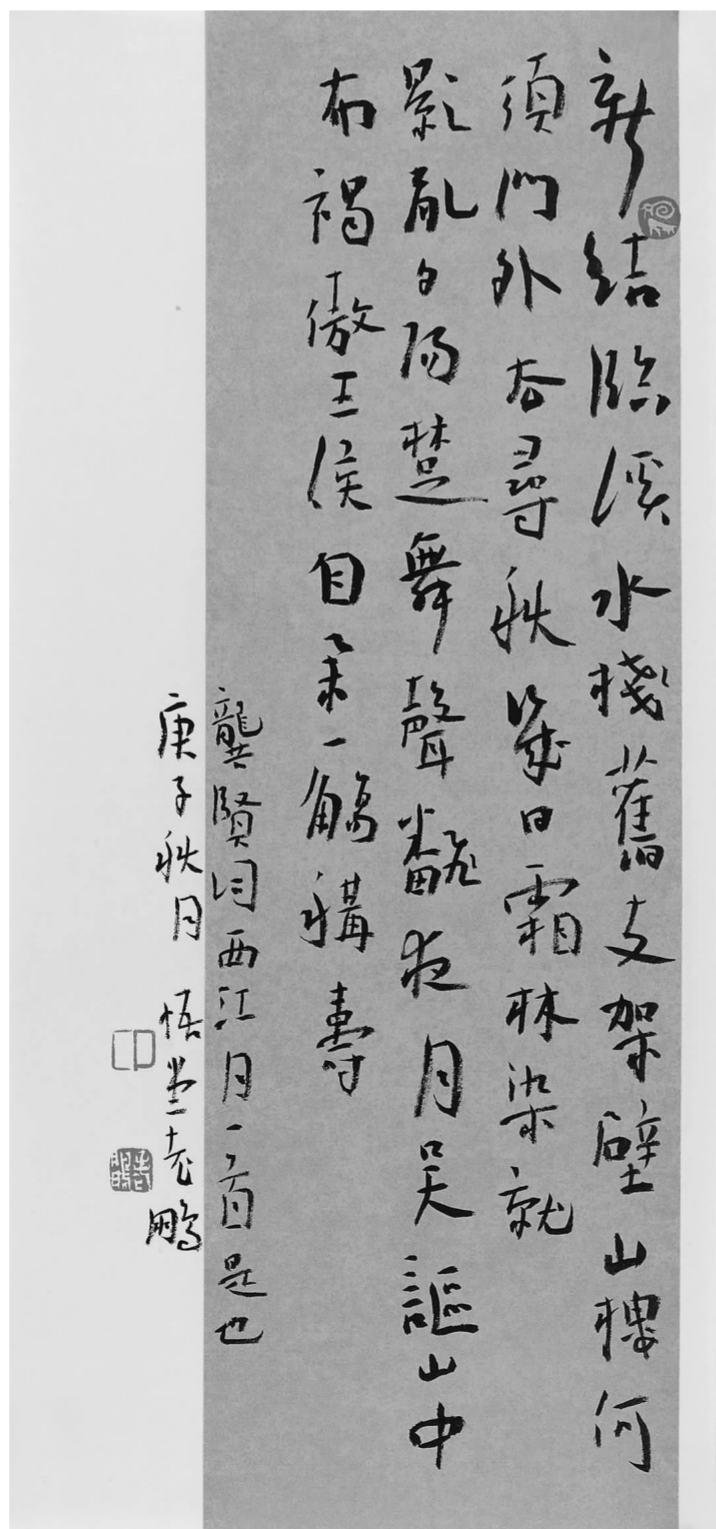 新結臨溪水棧舊支架壁山樓何
須門外去尋秋幾日霜林染就
影亂夕陽楚舞聲翻夜月吳謳山中
布褐傲王侯自舉一觴稱壽
龔賢詞西江月一首是也
庚子秋月 悟堂老鵬